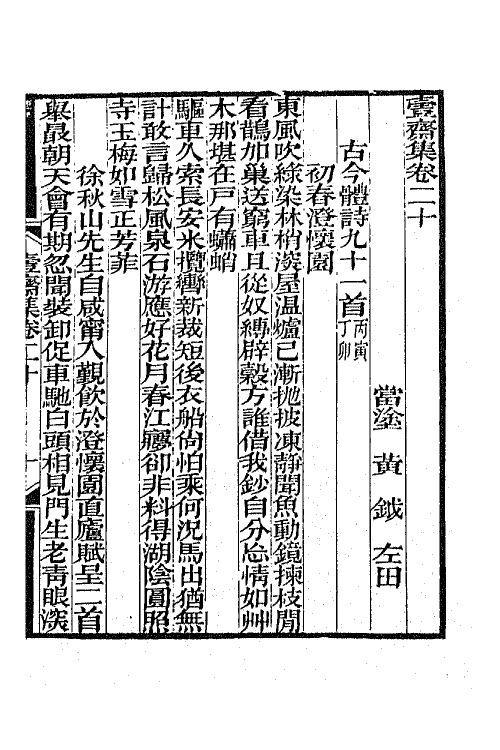 壹齋集卷二十
當塗 黃 鉞 左田
古今體詩九十一首丙寅丁卯
初春澄懷園
東風吹綠染林梢淺屋温爐已漸抛披凍靜聞魚動鏡揀枝閒
看鵲加巢送窮車且從奴縛辟穀方誰借我鈔自分忘情如艸
木那堪在戸有蠨蛸
驅車久索長安米攬轡新裁短後衣船尙怕乘何況馬出猶無
計敢言歸松風泉石游應好花月春江願卻非料得湖陰圓照
寺玉梅如雪正芳菲
徐秋山先生自咸甯入覲飲於澄懷園直廬賦呈二首
舉最朝天會有期忽聞裝卸促車馳白頭相見門生老靑眼深
壹齋集卷二十